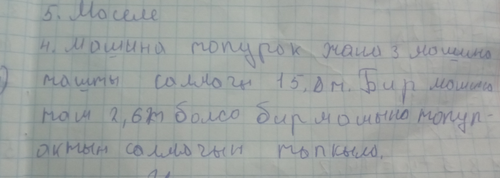 5. Маселе
4. машина топурак жана 3 машина
ташты салмагы 15. Бир машина
таш 2,6т болсо бир машина топур-
актын салмагын тапкыла.